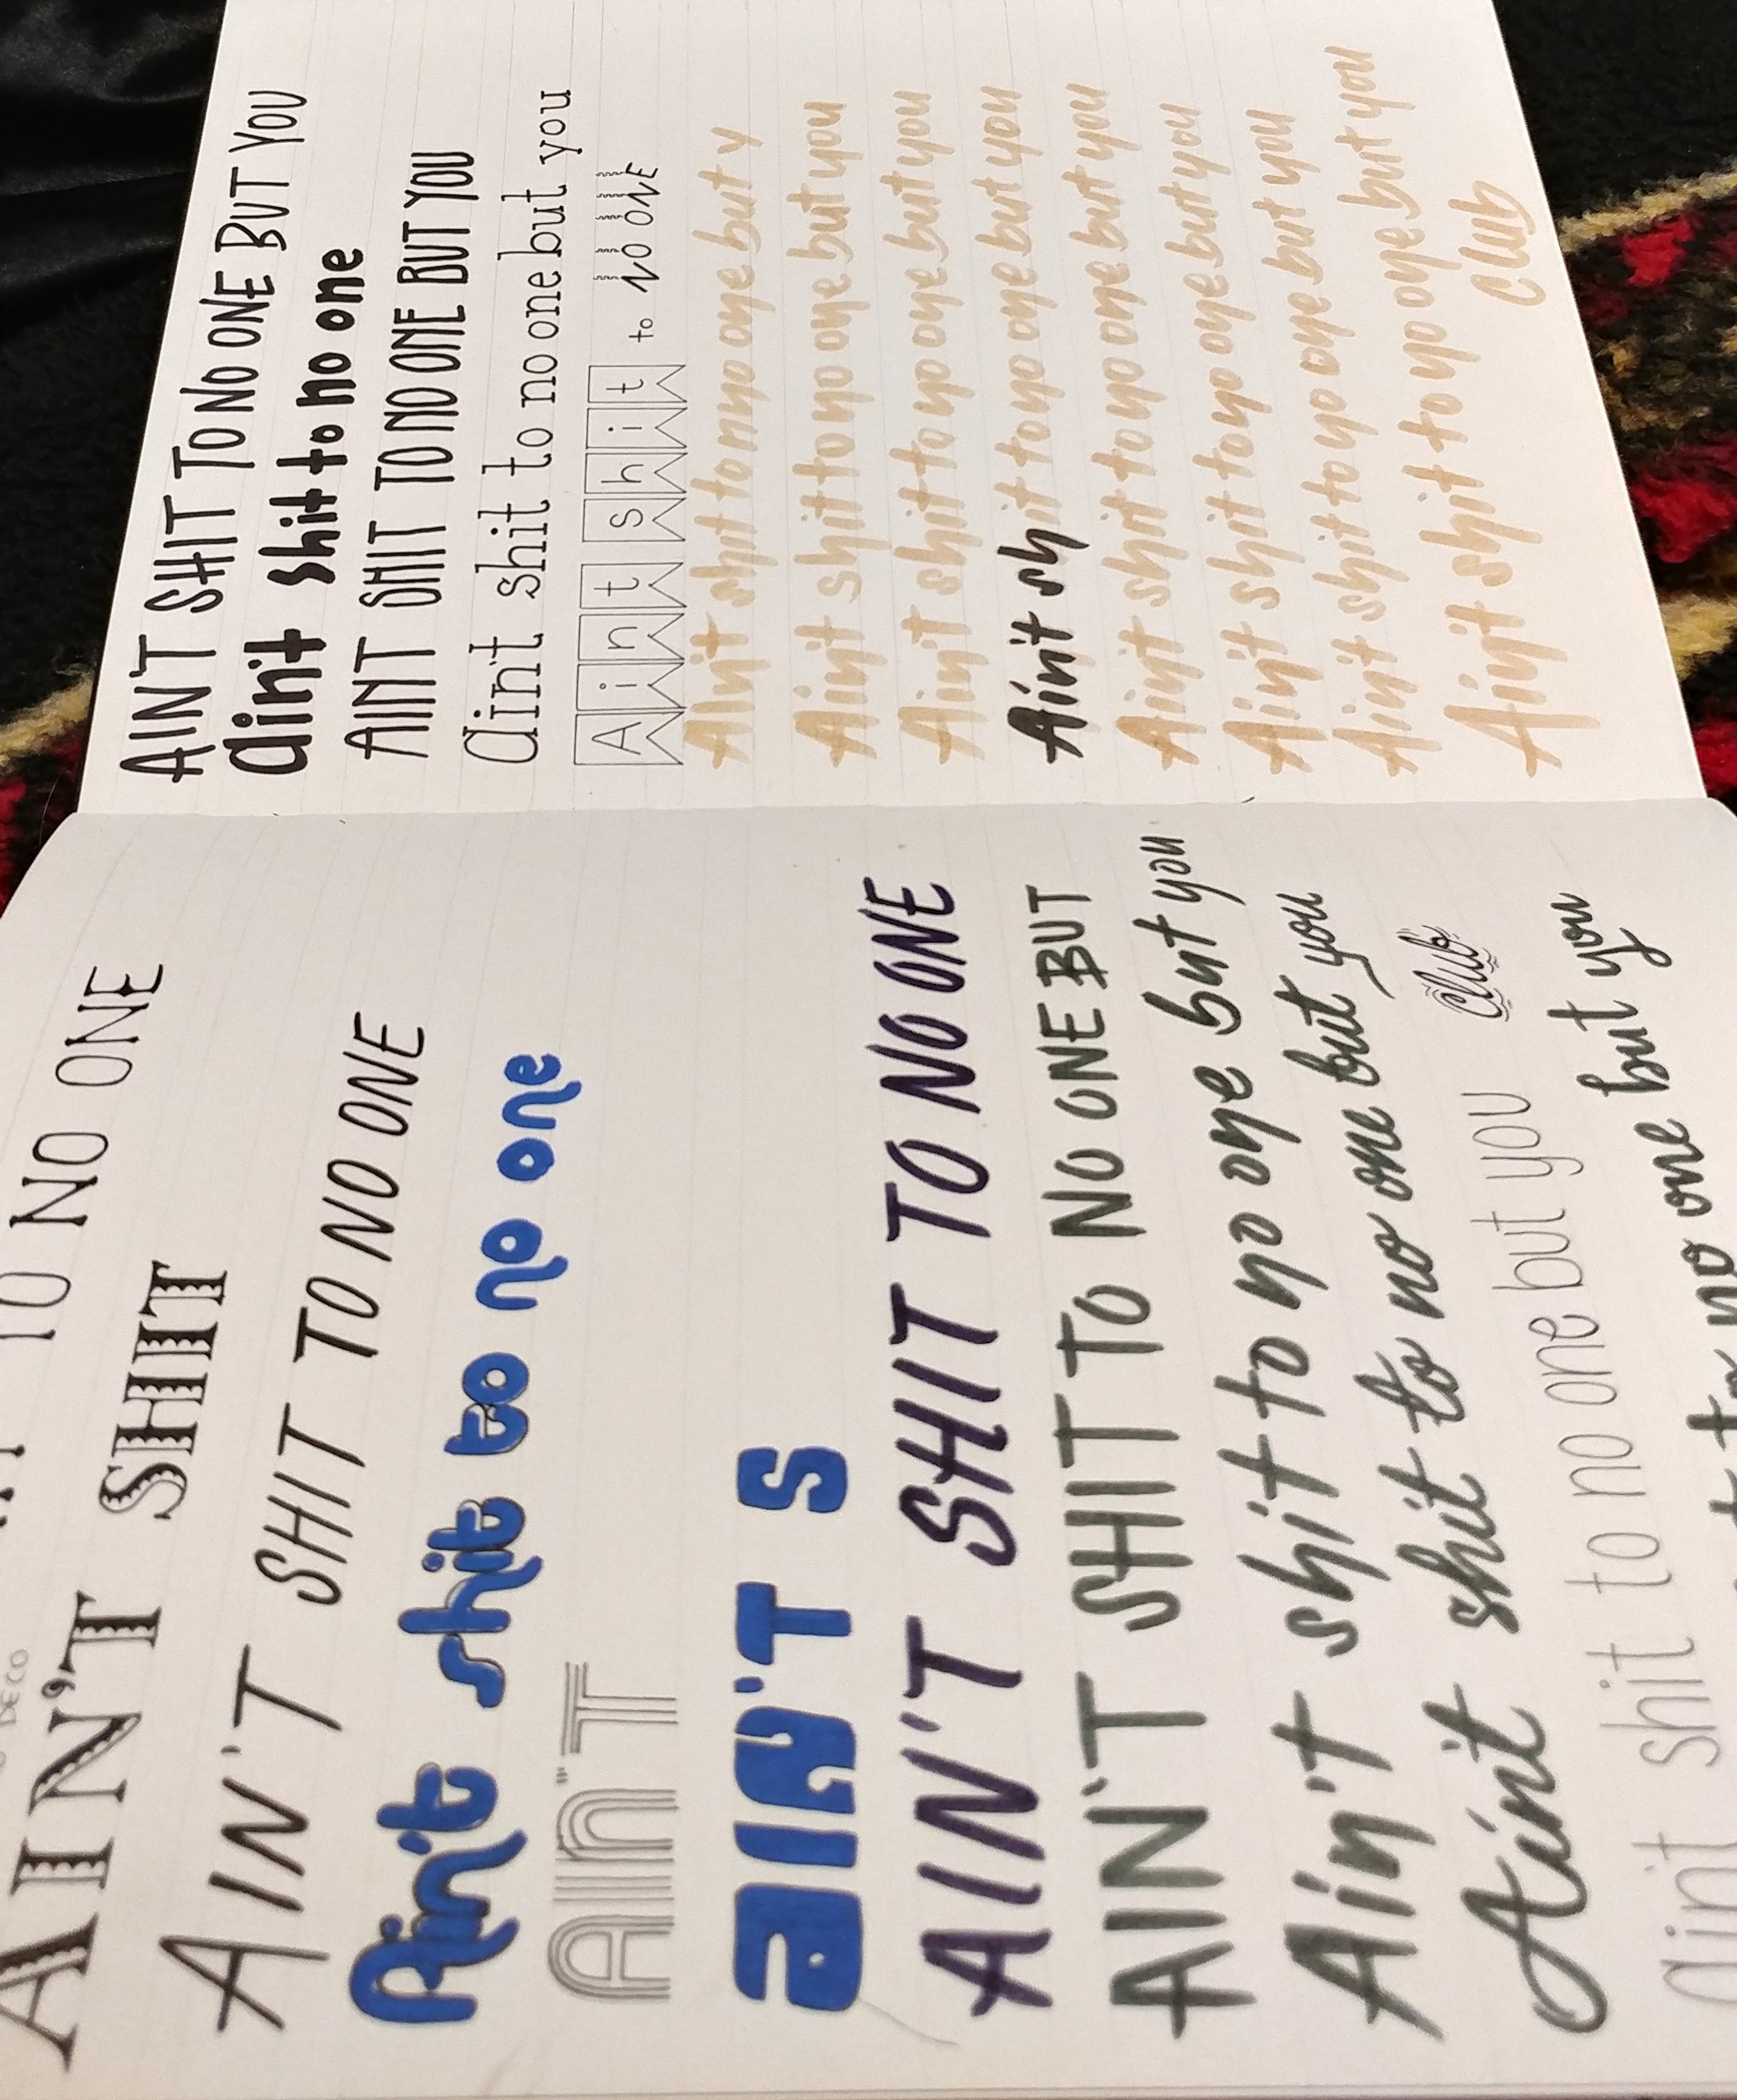 TO NO ONE
DECO
AIN'T SHIT
AIN'T SHIT TO NO ONE
Ain't shit to no one
AIn'T
aIN'T S
AIN'T SHIT TO NO ONE
AIN'T SHIT TO NO ONE BUT
Ain't shit to no one but you
Ain't shit to no one but you
Club
Aint shit to no one but you
to no one but you
AIN'T SHIT TO NO ONE BUT YOU
ain't shit to no one
AINT SHIT TO NO ONE BUT YOU
ain't shit to no one but you
Aint shit to NO ONE
AIn't shit to nno one but y
Ain't shit to no one but you
Ain't shit to no one but you
Ain't shit to no one but you
Ain't shit to no one but you
Ain't shit to no one but you
Ain't shit to no one but you
Ain't shit to no one but you
Club